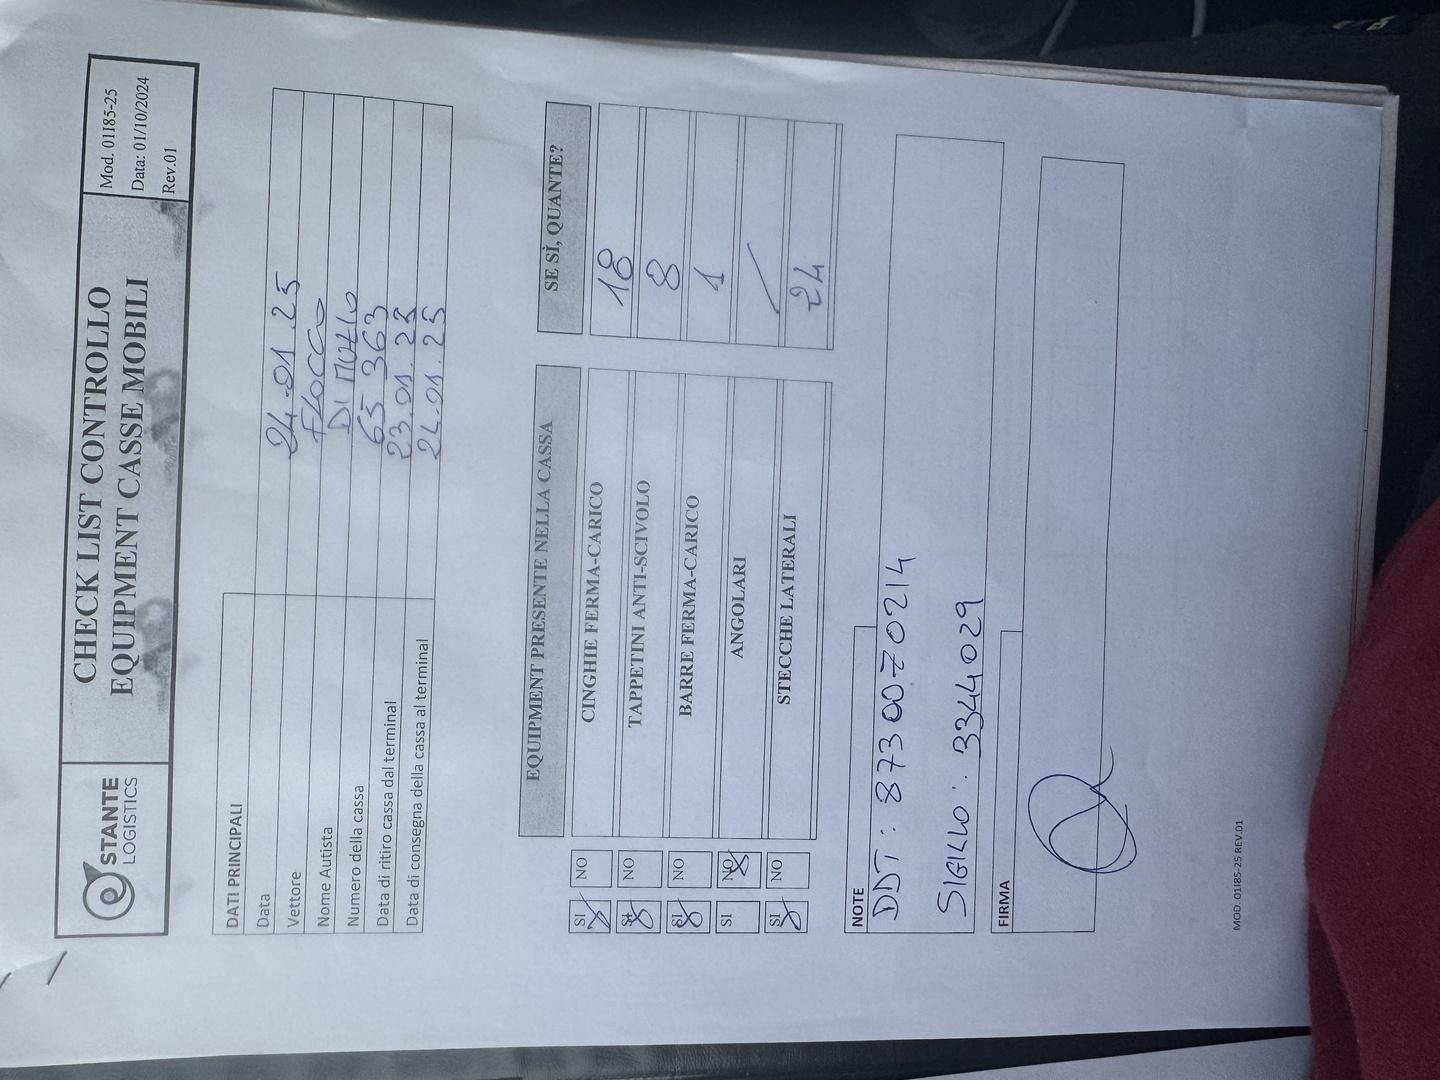 STANTE
LOGISTICS
CHECK LIST CONTROLLO
EQUIPMENT CASSE MOBILI
Mod. 01I85-25
Data: 01/10/2024
Rev.01
DATI PRINCIPALI
Data 24.01.25
Vettore FLOCCO
Nome Autista DI MUZIO
Numero della cassa 65 363
Data di ritiro cassa dal terminal 23.01.25
Data di consegna della cassa al terminal 24.01.25
EQUIPMENT PRESENTE NELLA CASSA SE SÌ, QUANTE?
SI NO CINGHIE FERMA-CARICO 18
SI NO TAPPETINI ANTI-SCIVOLO 8
SI NO BARRE FERMA-CARICO 1
SI NO ANGOLARI
SI NO STECCHE LATERALI 24
NOTE
DDT: 8730070214
SIGILLO: 3344029
FIRMA
MOD. 01I85-25 REV.01